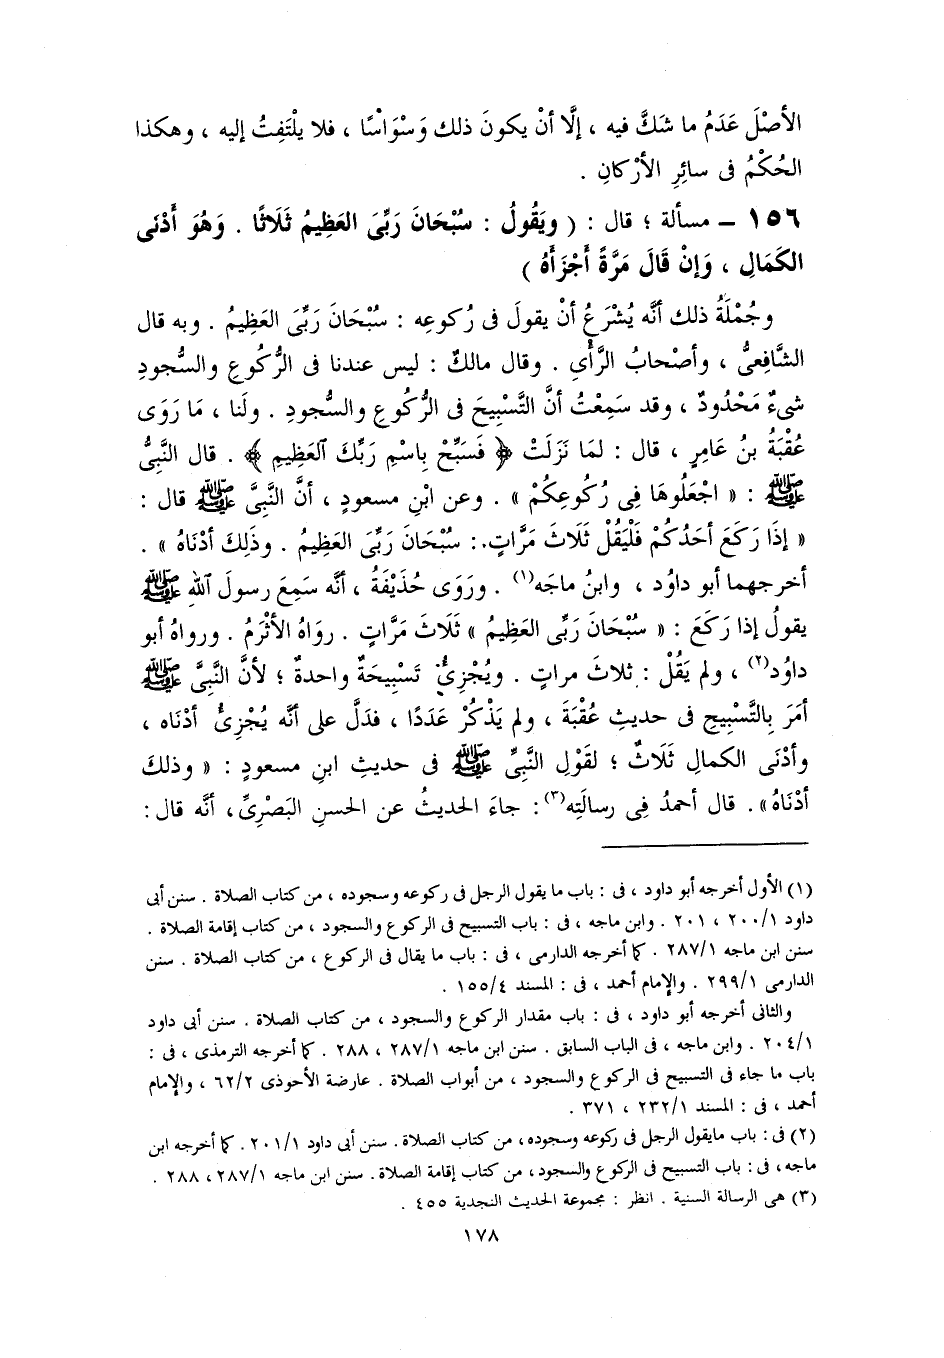 الأصْلَ عَدَمُ ما شَكَّ فيه ، إلَّا أنْ يكونَ ذلك وَسْوَاسًا ، فلا يلْتَفِتُ إليه ، وهكذا
الحُكْمُ فى سائِرِ الأرْكانِ .
١٥٦ – مسألة ؛ قال : ( ويَقُولُ : سُبْحَانَ رَبِّىَ العَظِيمُ ثَلَاثًا . وَهُوَ أَدْنَى
الكَمَالِ ، وَإنْ قَالَ مَرَّةً أَجْزَأَهُ )
وجُمْلَةُ ذلك أنَّه يُشْرَعُ أنْ يقولَ فى رُكوعِه : سُبْحَانَ رَبِّىَ العَظِيمُ . وبه قال
الشَّافِعىُّ ، وأصْحابُ الرَّأْىِ . وقال مالكٌ : ليس عندنا فى الرُّكُوعِ والسُّجودِ
شىءٌ مَحْدُودٌ ، وقد سَمِعْتُ أنَّ التَّسْبِيحَ فى الرُّكُوعِ والسُّجودِ . ولَنا ، مَا رَوَى
عُقْبَةُ بنُ عَامِرٍ ، قال : لمَا نَزَلَتْ ﴿ فَسَبِّحْ بِاسْمِ رَبِّكَ ٱلعَظِيمِ ﴾ . قال النَّبِىُّ
ﷺ : « اجْعَلُوهَا فِى رُكُوعِكُمْ » . وعن ابْنِ مسعودٍ ، أنَّ النَّبِىَّ ﷺ قال :
« إذَا رَكَعَ أحَدُكُمْ فَلْيَقُلْ ثَلَاثَ مَرَّاتٍ : سُبْحَانَ رَبِّىَ العَظِيمُ . وذَلِكَ أدْنَاهُ » .
أخرجهما أبو داوُد ، وابنُ ماجَه(١) . ورَوَى حُذَيْفَةُ ، أنَّه سَمِعَ رسولَ ٱللهِ ﷺ
يقولُ إذا رَكَعَ : « سُبْحَانَ رَبِّىَ العَظِيمُ » ثَلَاثَ مَرَّاتٍ . رَوَاهُ الأثْرَمُ . ورواهُ أبو
داوُد(٢) ، ولم يَقُلْ : ثلاثَ مراتٍ . ويُجْزِئُ تَسْبِيحَةٌ واحدةٌ ؛ لأنَّ النَّبِىَّ ﷺ
أمَرَ بِالتَّسْبِيحِ فى حديثِ عُقْبَةَ ، ولم يَذْكُرْ عَدَدًا ، فدَلَّ على أنَّه يُجْزِئُ أدْنَاه ،
وأدْنَى الكمالِ ثَلَاثٌ ؛ لقَوْلِ النَّبِىِّ ﷺ فى حديثِ ابنِ مسعودٍ : « وذلكَ
أدْنَاهُ» . قال أحمدُ فِى رسالَتِه(٣) : جاءَ الحديثُ عن الحسنِ البَصْرِىِّ ، أنَّه قال :
(١) الأول أخرجه أبو داود ، فى : باب ما يقول الرجل فى ركوعه وسجوده ، من كتاب الصلاة . سنن أبى
داود ٢٠٠/١ ، ٢٠١ . وابن ماجه ، فى : باب التسبيح فى الركوع والسجود ، من كتاب إقامة الصلاة .
سنن ابن ماجه ٢٨٧/١ . كما أخرجه الدارمى ، فى : باب ما يقال فى الركوع ، من كتاب الصلاة . سنن
الدارمى ٢٩٩/١ . والإمام أحمد ، فى : المسند ١٥٥/٤ .
والثانى أخرجه أبو داود ، فى : باب مقدار الركوع والسجود ، من كتاب الصلاة . سنن أبى داود
٢٠٤/١ . وابن ماجه ، فى الباب السابق . سنن ابن ماجه ٢٨٧/١ ، ٢٨٨ . كما أخرجه الترمذى ، فى :
باب ما جاء فى التسبيح فى الركوع والسجود ، من أبواب الصلاة . عارضة الأحوذى ٦٢/٢ ، والإمام
أحمد ، فى : المسند ٢٣٢/١ ، ٣٧١ .
(٢) فى : باب مايقول الرجل فى ركوعه وسجوده، من كتاب الصلاة. سنن أبى داود ٢٠١/١. كما أخرجه ابن
ماجه، فى: باب التسبيح فى الركوع والسجود، من كتاب إقامة الصلاة. سنن ابن ماجه ٢٨٧/١، ٢٨٨ .
(٣) هى الرسالة السنية . انظر : مجموعة الحديث النجدية ٤٥٥ .
١٧٨